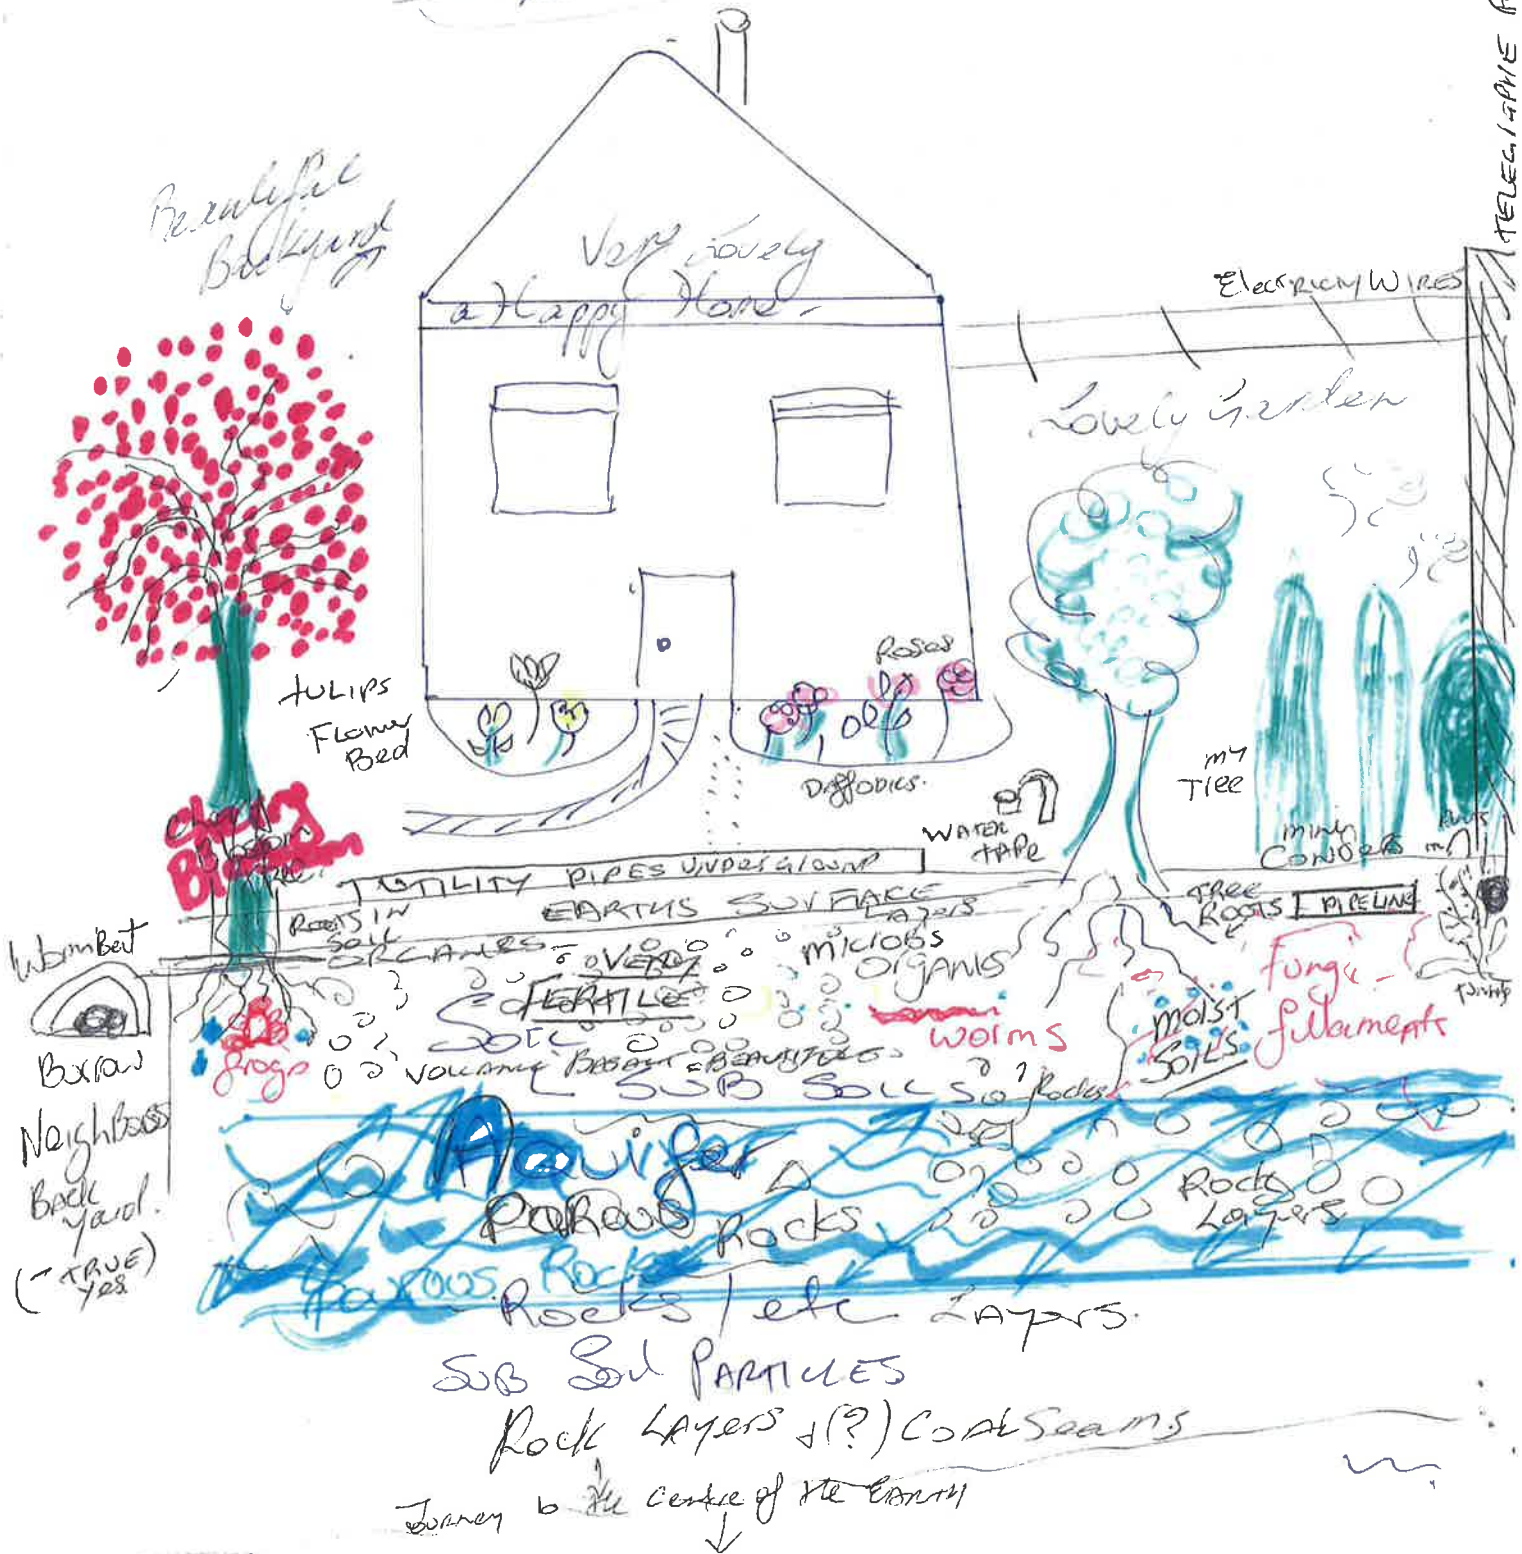 TELEGRAPHE
Beautiful
Backyard
Very Lovely
a Happy Home
Electricity WIRES
Lovely Garden
Roses
TULIPS
Flower
Bed
Daffodils.
WATER
TAPE
my
Tree
mini
Conifers
Cherry
Blossom
Tree
UTILITY PIPES UNDERGROUND
EARTHS SURFACE
LAYERS
TREE
ROOTS
PIPELINE
ROOTS IN
SOIL
ORGANICS
VERY
FERTILE
SOIL
microbs
ORGANICS
WomBat
Burrow
frogs
worms
moist
SOILS
Fungi -
filaments
VOLCANIC BASALT = BEAUTIFUL
SUB SOILS
Rocks
Neighbours
Back
Yard.
(- TRUE)
yes
Aquifer
PoRous Rocks
Rock
Layers
Porous Rock
Rocks / etc LAyers.
SUB Soil PARTICLES
Rock LAyers & (?) COAL Seams
Journey to the centre of the EARTH